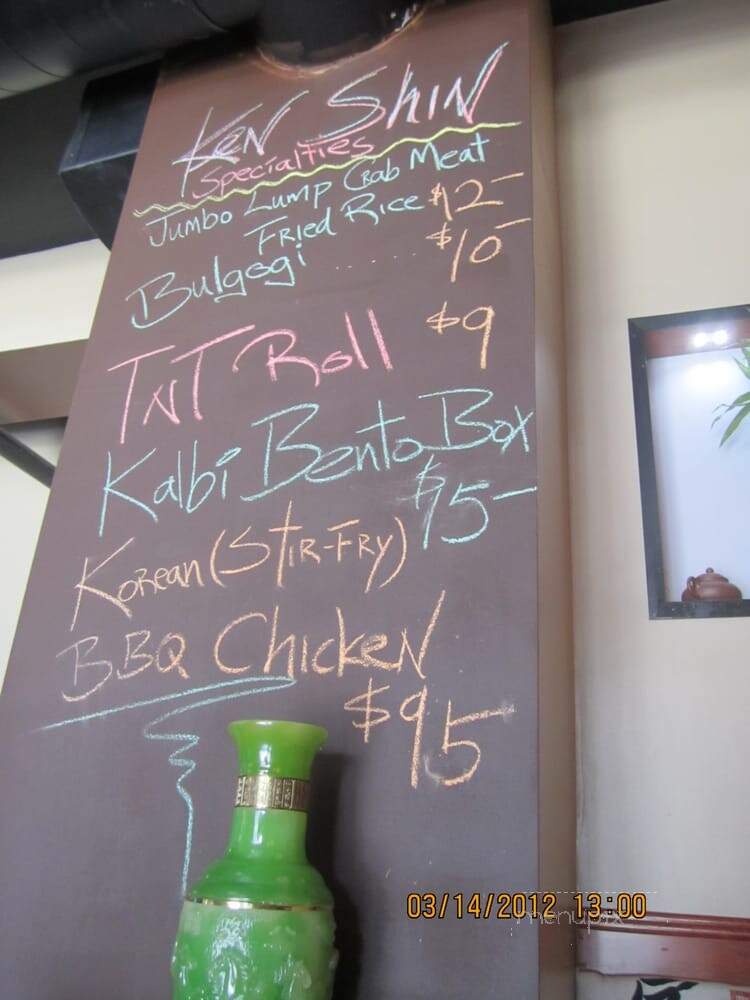 Ken Shin
Specialties
Jumbo Lump Crab Meat
Fried Rice $12-
Bulgogi ...... $10-
TNT Roll $9
Kalbi Bento Box
$15-
Korean (Stir-Fry)
BBQ Chicken
$95
03/14/2012 13:00
menupix